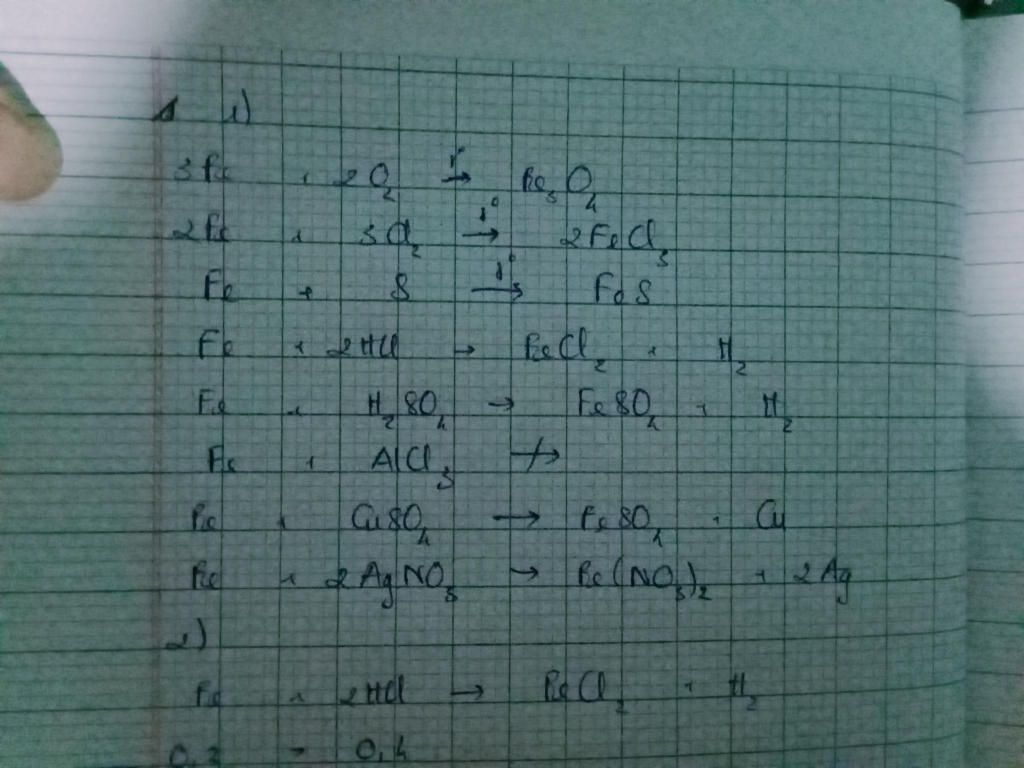 1 1)
3Fe + 2O₂ →t° Fe₃O₄
2Fe + 3Cl₂ →t° 2FeCl₃
Fe + S →t° FeS
Fe + 2HCl → FeCl₂ + H₂
Fe + H₂SO₄ → FeSO₄ + H₂
Fe + AlCl₃ ↛
Fe + CuSO₄ → FeSO₄ + Cu
Fe + 2AgNO₃ → Fe(NO₃)₂ + 2Ag
2)
Fe + 2HCl → FeCl₂ + H₂
0,2 → 0,4